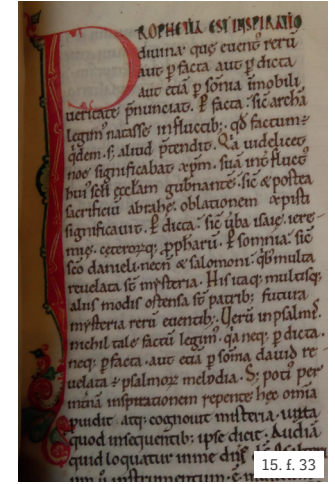 PROPHETIA EST INSPIRATIO
diuina que euent rerū
aut p facta aut p dicta
aut etiā p sōnia inmobili
ueritate p̄nunciat. P facta sic archā
legim natasse in fluctib; qd factum
qdem. s; aliud p̄tendit. Qa uidelicet
noe significabat xp̄m. suā int fluct
hui scli ecclam gubnante. sic & postea
sacrificiū abrahę oblationem xpisti
significauit. P dicta. sic uba isaię. iere-
mię. ceterorq; pphetarū. P somnia. sic
sco danieli. necn & salomoni. qb; multa
reuelata st mysteria. His itaq; multisq;
aliis modis ostensa st patrib; futura
mysteria rerū euentib; Uerū in psalmis
nichil tale factū legim. qa neq; p dicta.
neq; p facta. aut etiā p sōnia dauid re-
uelata ę psalmorū melodia. S; poti per
intimā inspirationem repente hęc omia
puidit atq; cognouit misteria. iuxta
quod in sequentib; ipse dicit. Audiā
quid loquatur in me dn̄s
instrumentum
15. f. 33